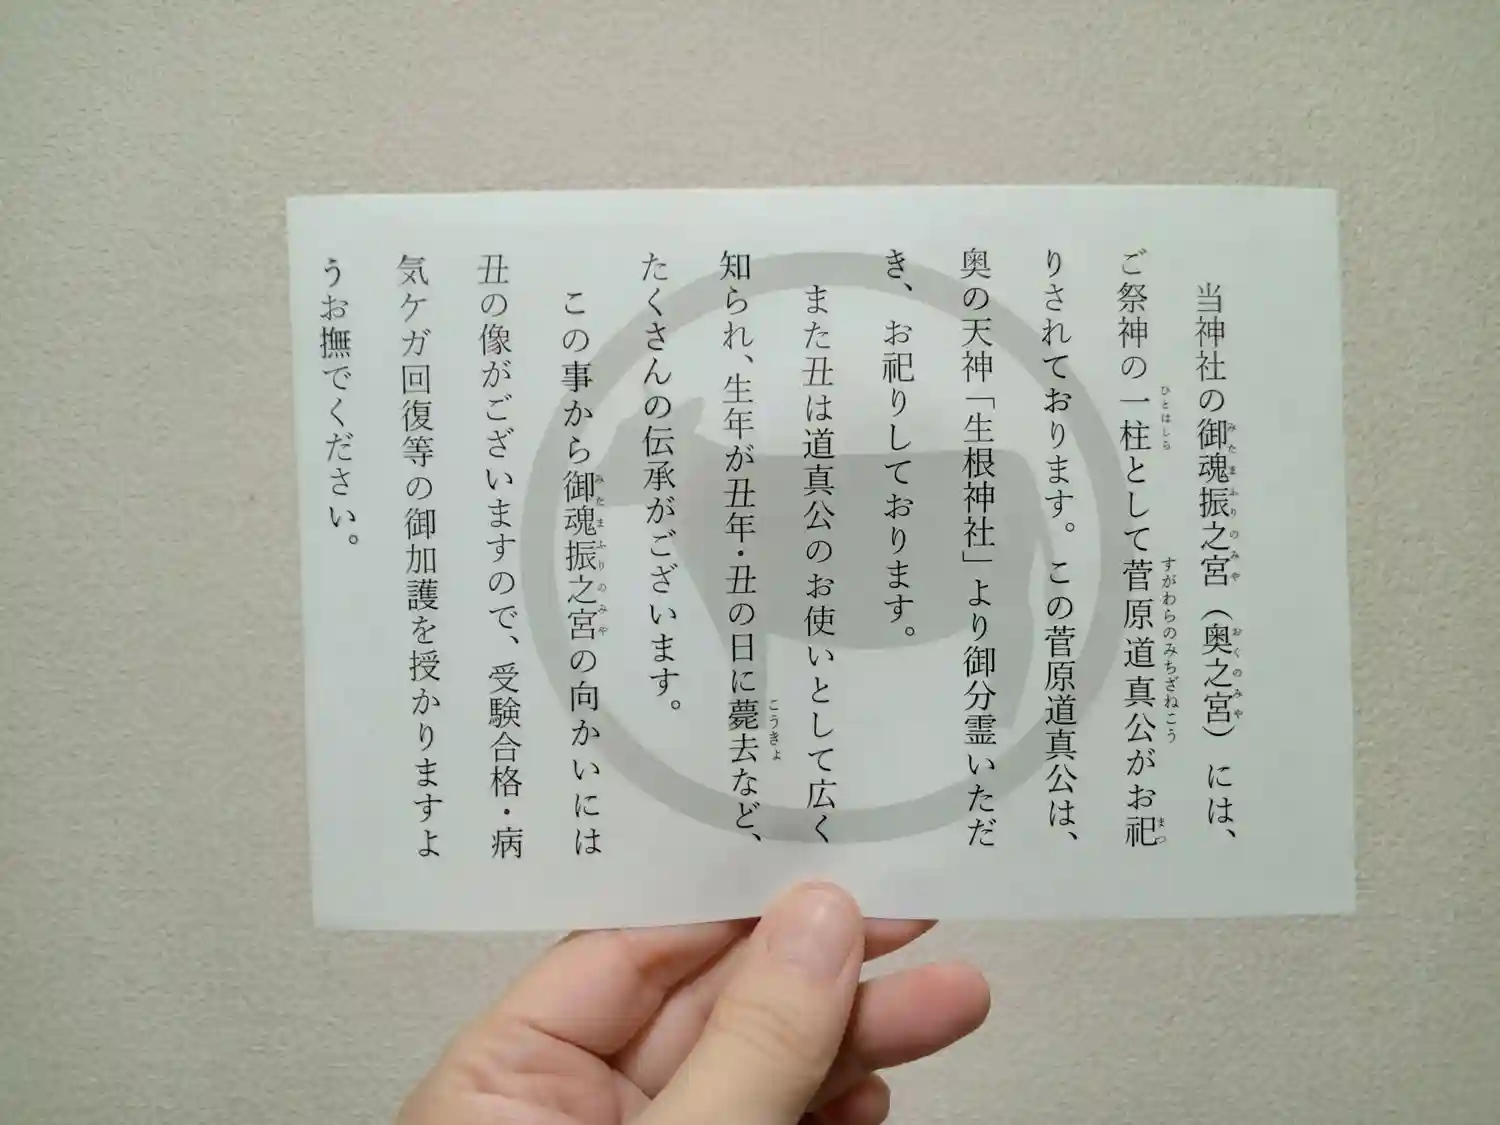 当神社の御魂振之宮（奥之宮）には、
ご祭神の一柱として菅原道真公がお祀
りされております。この菅原道真公は、
奥の天神「生根神社」より御分霊いただ
き、お祀りしております。
また丑は道真公のお使いとして広く
知られ、生年が丑年・丑の日に薨去など、
たくさんの伝承がございます。
この事から御魂振之宮の向かいには
丑の像がございますので、受験合格・病
気ケガ回復等の御加護を授かりますよ
うお撫でください。
みたまふりのみや
おくのみや
ひとはしら
すがわらのみちざねこう
まつ
こうきょ
みたまふりのみや